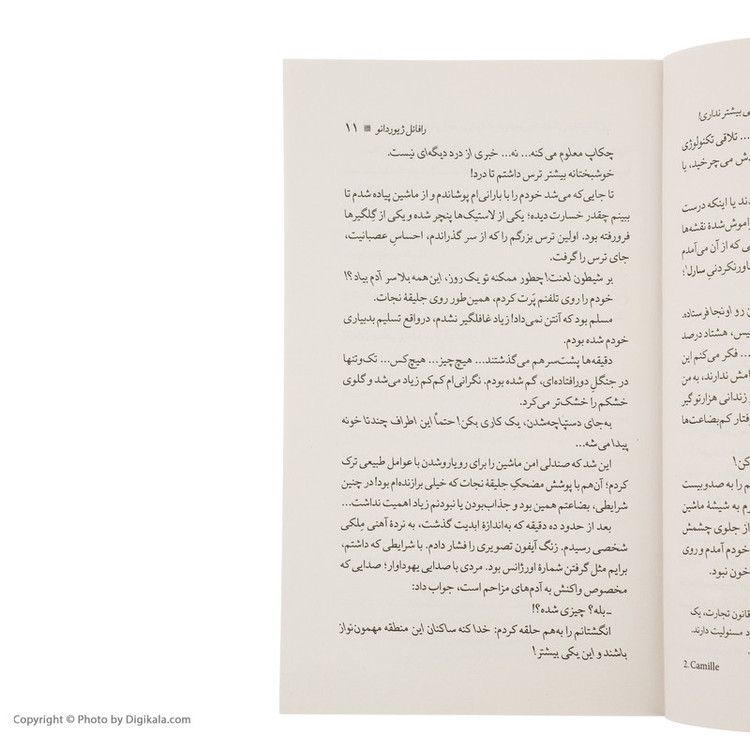 رافائل ژیوردانو ۱۱
چکاپ معلوم می‌کنه... نه... خبری از درد دیگه‌ای نیست.
خوشبختانه بیشتر ترس داشتم تا درد!
تا جایی‌که می‌شد خودم را با بارانی‌ام پوشاندم و از ماشین پیاده شدم تا
ببینم چقدر خسارت دیده؛ یکی از لاستیک‌ها پنچر شده و یکی از گِلگیرها
فرورفته بود. اولین ترس بزرگم را که از سر گذراندم، احساسِ عصبانیت،
جای ترس را گرفت.
بر شیطون لعنت! چطور ممکنه تو یک روز، این‌همه بلا سر آدم بیاد؟!
خودم را روی تلفنم پَرت کردم، همین‌طور روی جلیقهٔ نجات.
مسلم بود که آنتن نمی‌داد! زیاد غافلگیر نشدم، درواقع تسلیم بدبیاری
خودم شده بودم.
دقیقه‌ها پشت‌سرهم می‌گذشتند... هیچ‌چیز... هیچ‌کس... تک‌وتنها
در جنگلِ دورافتاده‌ای، گم شده بودم. نگرانی‌ام کم‌کم زیاد می‌شد و گلوی
خشکم را خشک‌تر می‌کرد.
به‌جای دستپاچه‌شدن، یک کاری بکن! حتماً این اطراف چندتا خونه
پیدا می‌شه...
این شد که صندلی امن ماشین را برای رویاروشدن با عوامل طبیعی ترک
کردم؛ آن‌هم با پوشش مضحکِ جلیقهٔ نجات که خیلی برازنده‌ام بود! در چنین
شرایطی، بضاعتم همین بود و جذاب‌بودن یا نبودنم زیاد اهمیت نداشت...
بعد از حدود ده دقیقه که به‌اندازهٔ ابدیت گذشت، به نردهٔ آهنی مِلکی
شخصی رسیدم. زنگ آیفون تصویری را فشار دادم. با شرایطی که داشتم،
برایم مثل گرفتن شمارهٔ اورژانس بود. مردی با صدایی یهوداوار؛ صدایی که
مخصوص واکنش به آدم‌های مزاحم است، جواب داد:
ـ بله؟ چیزی شده؟!
انگشتانم را به‌هم حلقه کردم: خدا کنه ساکنان این منطقه مهمون‌نواز
باشند و این یکی بیشتر!
ی بیشتر نداری!
... تلاقی تکنولوژی
دش می‌چرخید، یا
ند یا اینکه درست
راموش‌شدهٔ نقشه‌ها
ی که از آن می‌آمدم
ن رو اونجا فرستاده.
یس، هشتاد درصد
... فکر می‌کنم این
امش ندارند، به من
ر زندانی هزارتو گیر
فتار کم‌بضاعت‌ها
کن!
م را به صدوبیست
رم به شیشهٔ ماشین
از جلوی چشمش
خودم آمدم و روی
خون نبود.
قانون تجارت، یک
د مسئولیت دارند.
2. Camille
Copyright © Photo by Digikala.com